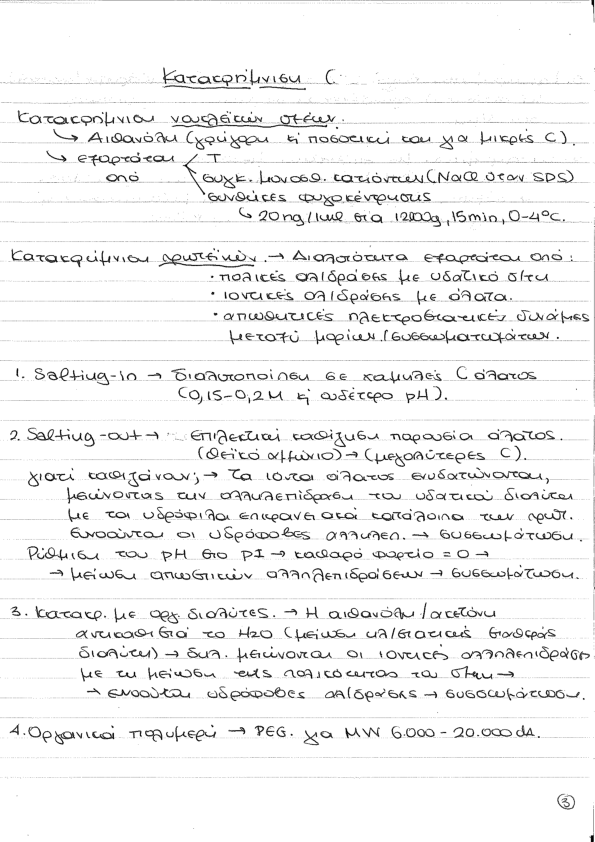 Κατακρήμνιση C
Κατακρήμνιση νουκλεϊκών οξέων.
↳ Αιθανόλη (γρήγορη κ ποσοτική και για μικρές C).
↳ εξαρτάται Τ
από συγκ. μονοσθ. κατιόντων (NaCl όταν SDS)
συνθήκες φυγοκέντρησης
↳ 20ng/1ml στα 12000g, 15min, 0-4°C.
Κατακρήμνιση πρωτεϊνών. → Διαλυτότητα εξαρτάται από:
· πολικές αλ/δράσεις με υδατικό δ/τη
· ιοντικές αλ/δράσεις με άλατα.
· απωθητικές ηλεκτροστατικές δυνάμεις
μεταξύ μορίων/συσσωματωμάτων.
1. Salting-in → διαλυτοποίηση σε χαμηλές C άλατος
(0,15-0,2M κ ουδέτερο pH).
2. Salting-out → επιλεκτική καθίζηση παρουσία άλατος.
(θειικό αμμώνιο) → (μεγαλύτερες C).
γιατί καθιζάνουν; → Τα ιόντα άλατος ενυδατώνονται,
μειώνοντας την αλληλεπίδραση του υδατικού διαλύτη
με τα υδρόφιλα επιφανειακά κατάλοιπα των πρωτ.
Ευνοούνται οι υδρόφοβες αλληλεπ. → συσσωμάτωση.
Ρύθμιση του pH στο pI → καθαρό φορτίο = 0 →
→ μείωση απωστικών αλληλεπιδράσεων → συσσωμάτωση.
3. Κατακρ. με οργ. διαλύτες. → Η αιθανόλη/ακετόνη
αντικαθιστά το H2O (μείωση ηλ/στατικής σταθεράς
διαλύτη) → δηλ. μειώνονται οι ιοντικές αλληλεπιδράσεις
με τη μείωση της πολικότητας του δ/τη →
→ ευνοούνται υδρόφοβες αλ/δράσεις → συσσωμάτωση.
4. Οργανικά πολυμερή → PEG. για MW 6.000 - 20.000 dA.
3